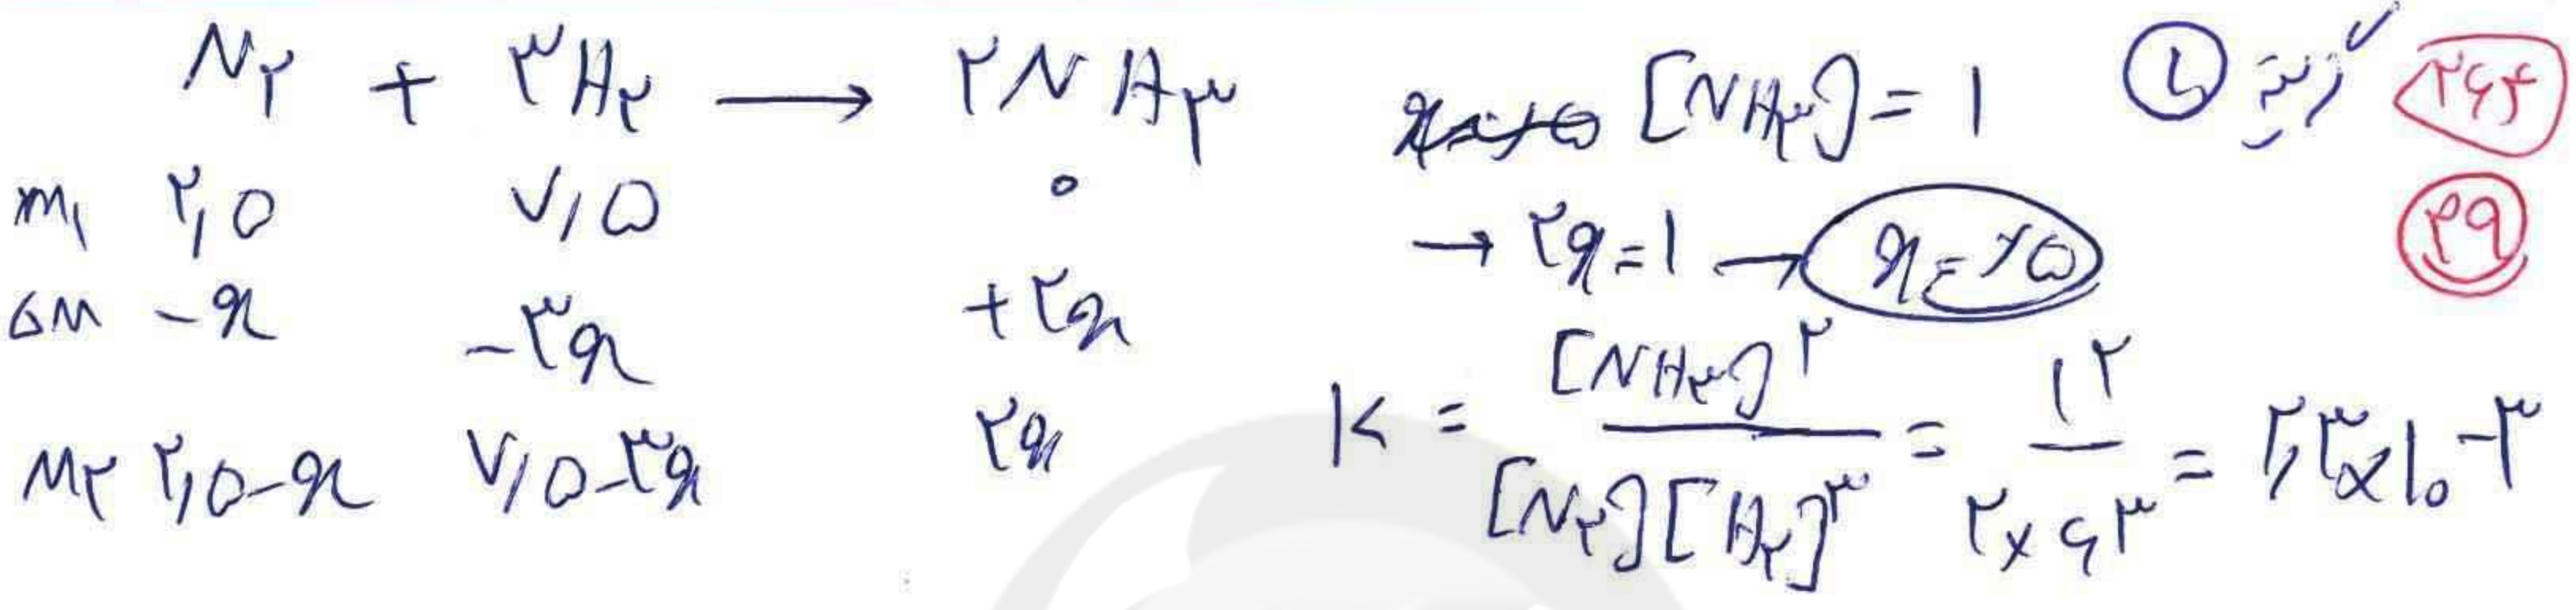 N۲ + ۳H۲ → ۲NH۳
M۱ ۲,۵ ۷,۵ ۰
ΔM -x -۳x +۲x
M۲ ۲,۵-x ۷,۵-۳x ۲x
۲۶۴ گزینه
۴۹
[NH۳] = ۱
→ ۲x = ۱ → x = ٫۵
K = [NH۳]^۲ / [N۲][H۲]^۳ = ۱^۲ / ۲×۶^۳ = ۲,۳×۱۰^-۳